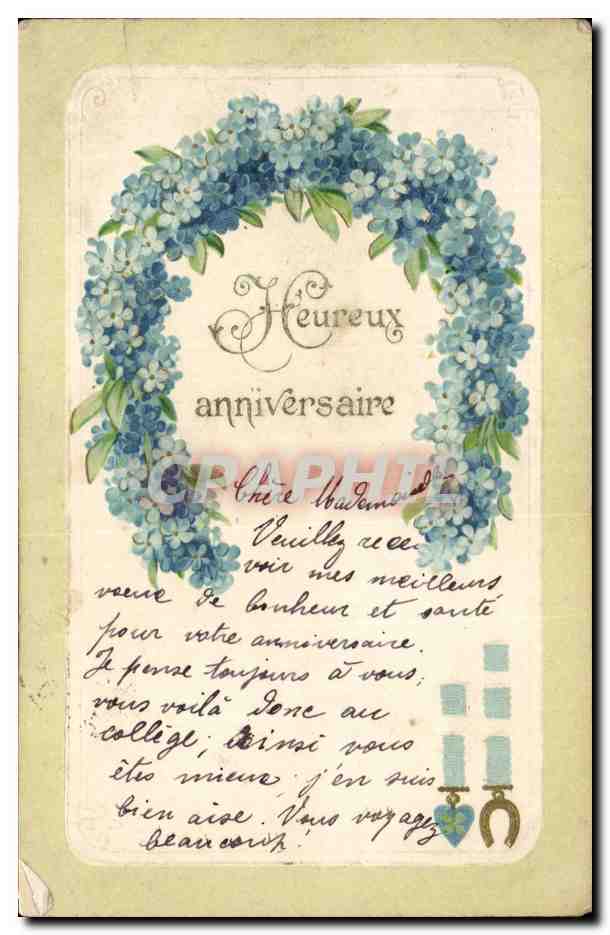 Heureux
anniversaire
CPAPHIL
Chère Mademoiselle
Veuillez rece
voir mes meilleurs
voeux de bonheur et santé
pour votre anniversaire.
Je pense toujours à vous;
vous voilà donc au
collège; ainsi vous
êtes mieux; j'en suis
bien aise. Vous voyagez
beaucoup!